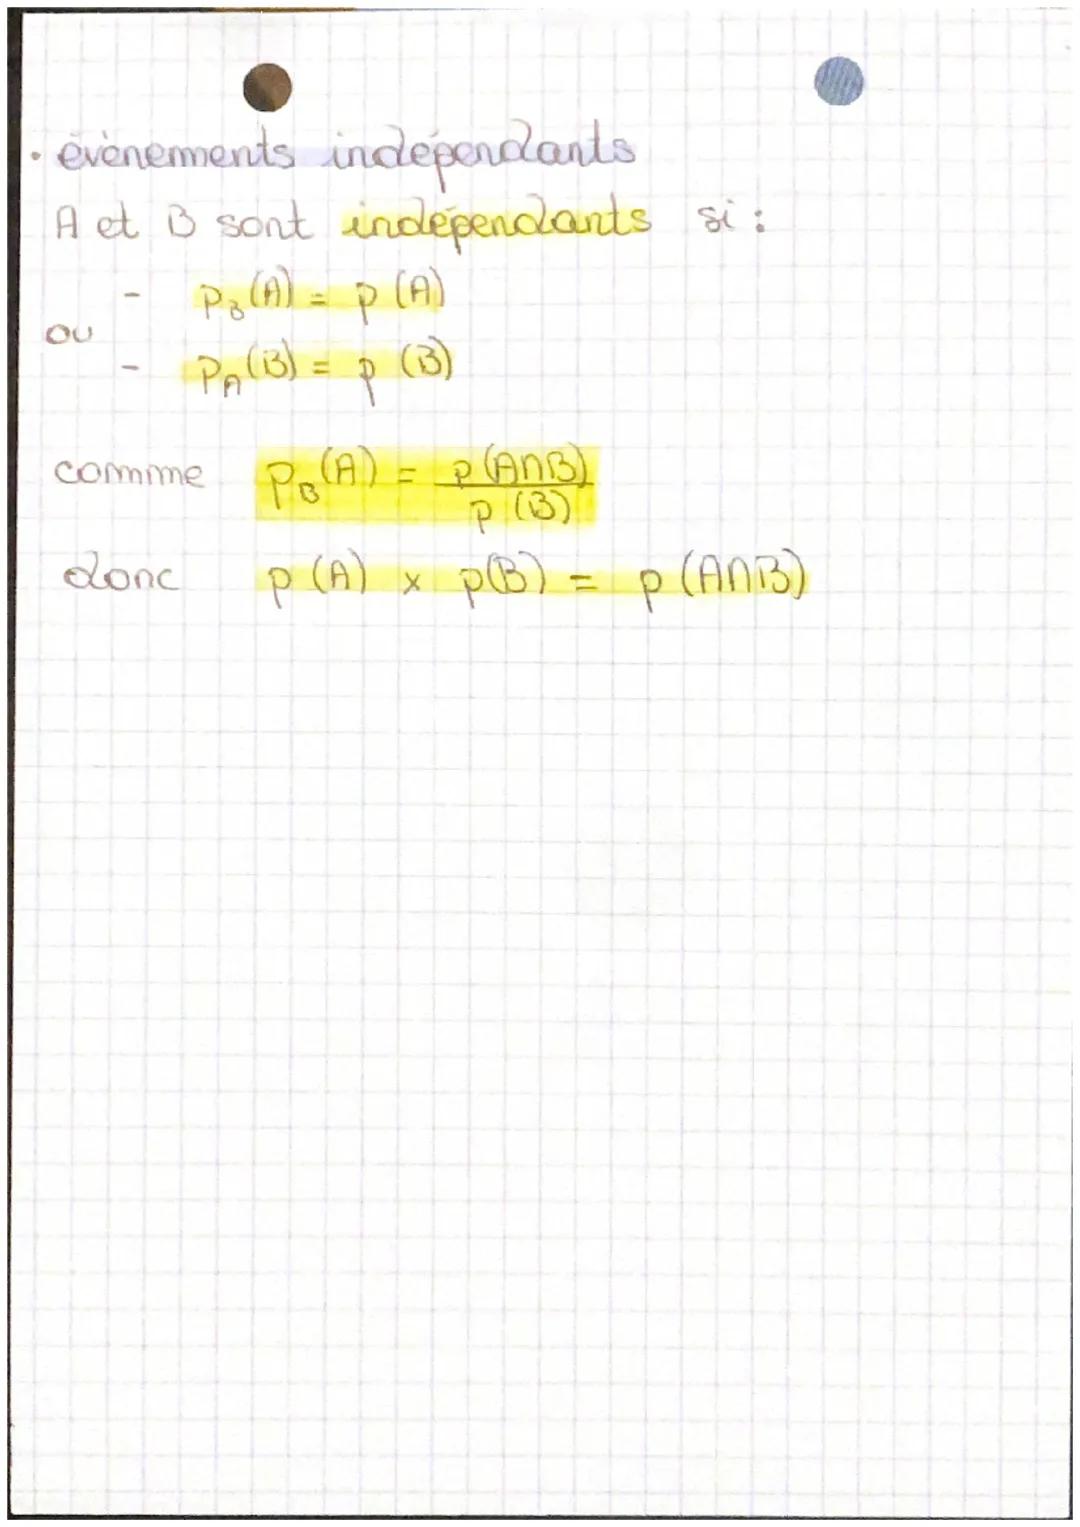 • évènements indépendants
A et B sont indépendants si :
- p_B(A) = p(A)
ou
- p_A(B) = p(B)
comme p_B(A) = p(A∩B) / p(B)
donc p(A) x p(B) = p(A∩B)